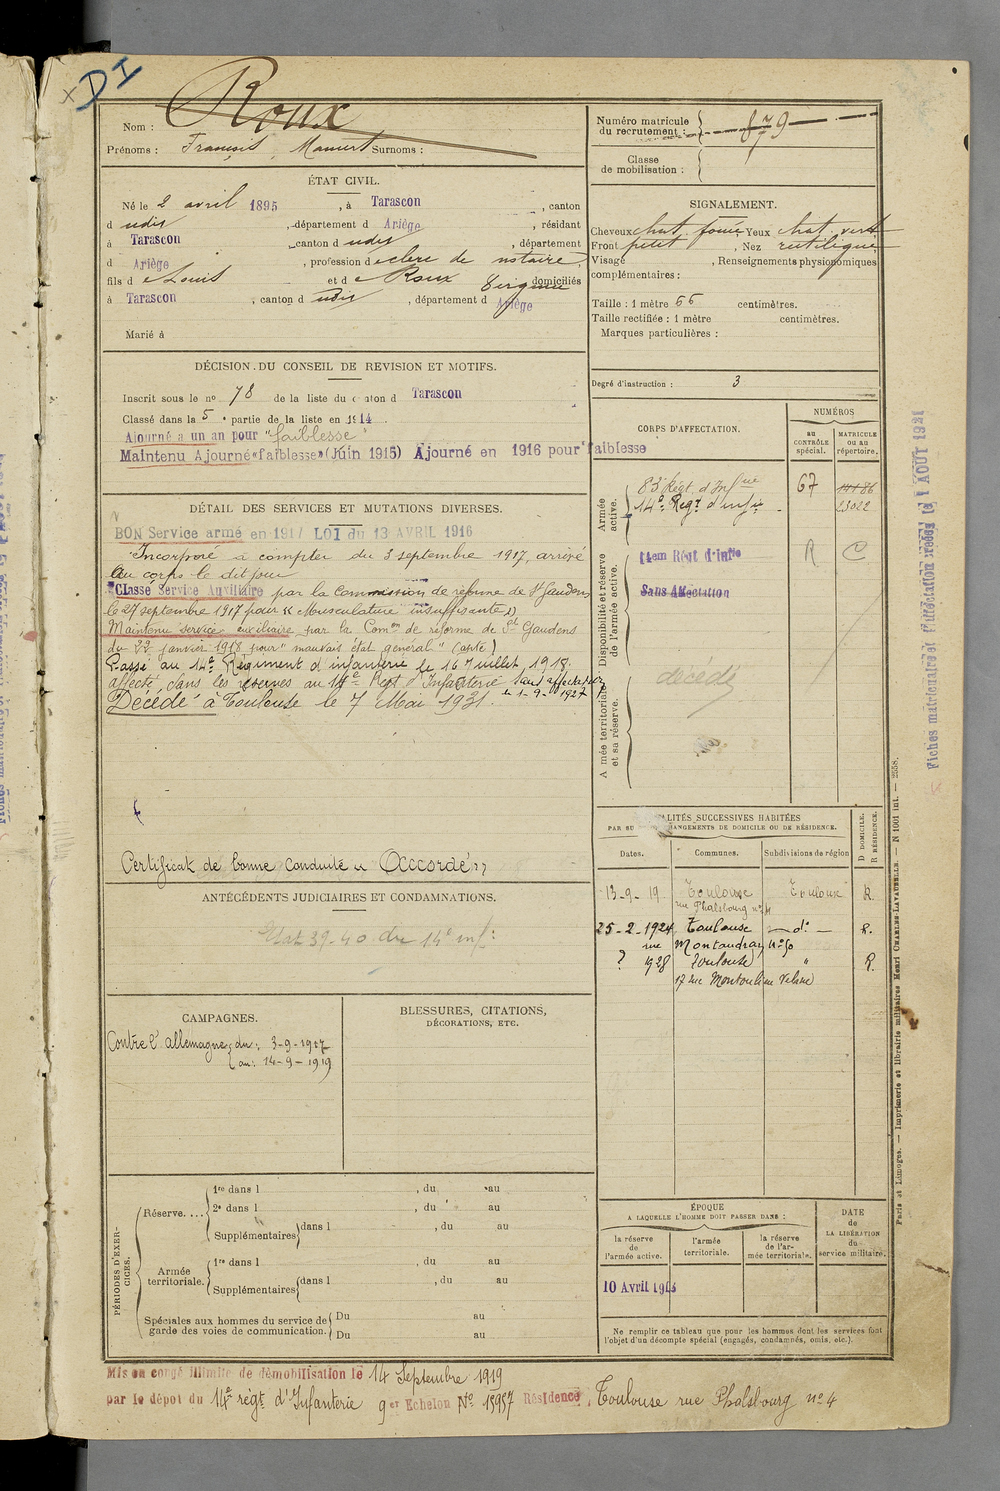 D I
Nom : Roux
Prénoms : François, Mamert Surnoms :
Numéro matricule du recrutement : 879
Classe de mobilisation :
ÉTAT CIVIL.
Né le 2 avril 1895, à Tarascon, canton
d udit, département d Ariège, résidant
à Tarascon canton d udit, département
d Ariège, profession de clerc de notaire
fils de Louis et de Roux Virginie domiciliés
à Tarascon, canton d udit, département d Ariège
Marié à
SIGNALEMENT.
Cheveux chat. foncé Yeux chat. vert
Front petit, Nez rectiligne
Visage , Renseignements physionomiques
complémentaires :
Taille : 1 mètre 66 centimètres.
Taille rectifiée : 1 mètre centimètres.
Marques particulières :
Degré d'instruction : 3
DÉCISION DU CONSEIL DE REVISION ET MOTIFS.
Inscrit sous le no 78 de la liste du canton d Tarascon
Classé dans la 5e partie de la liste en 1914
Ajourné a un an pour "faiblesse"
Maintenu Ajourné «faiblesse» (Juin 1915) Ajourné en 1916 pour faiblesse
DÉTAIL DES SERVICES ET MUTATIONS DIVERSES.
BON Service armé en 1917 LOI du 13 AVRIL 1916
Incorporé à compter du 3 septembre 1917, arrivé
au corps le dit jour
Classé Service Auxiliaire par la Commission de réforme de St Gaudens
le 27 septembre 1917 pour « Musculature insuffisante »
Maintenu service auxiliaire par la Comon de réforme de St Gaudens
du 22 janvier 1918 pour "mauvais état general"
Passé au 14e Régiment d'infanterie le 16 Juillet 1918.
affecté dans les réserves au 14e Regt d'Infanterie Sans affectation
le 1-9-1927
Décédé à Toulouse le 7 Mai 1931.
Certificat de bonne conduite « Accordé »
CORPS D'AFFECTATION.
NUMÉROS
au CONTRÔLE spécial.
MATRICULE ou au répertoire.
Armée active.
83e Régt d'Infrie 67 14186
14e Regt d'infie 23022
Disponibilité et réserve de l'armée active.
14em Régt d'Infie R C
Sans Affectation
Armée territoriale et sa réserve.
décédé
ANTÉCÉDENTS JUDICIAIRES ET CONDAMNATIONS.
Etat 39-40 du 14e inf :
LOCALITÉS SUCCESSIVES HABITÉES
PAR SUITE DE CHANGEMENTS DE DOMICILE OU DE RÉSIDENCE.
Dates. Communes. Subdivisions de région
D DOMICILE. R RÉSIDENCE.
13-9-19 Toulouse Toulouse R.
rue Phalsbourg no 4
25-2-1924 Toulouse — do — R.
rue Montaudran no 50
? 1928 Toulouse " R.
CAMPAGNES.
Contre l'allemagne { du : 3-9-1917
au : 14-9-1919
BLESSURES, CITATIONS,
DÉCORATIONS, ETC.
PÉRIODES D'EXERCICES.
Réserve....
1re dans l , du au
2e dans l , du au
Supplémentaires dans l , du au
Armée territoriale.
1re dans l , du au
Supplémentaires dans l , du au
Spéciales aux hommes du service de garde des voies de communication.
Du au
Du au
ÉPOQUE
A LAQUELLE L'HOMME DOIT PASSER DANS :
la réserve de l'armée active.
l'armée territoriale.
la réserve de l'armée territoriale.
DATE de LA LIBÉRATION du service militaire.
10 Avril 1918
Ne remplir ce tableau que pour les hommes dont les services font
l'objet d'un décompte spécial (engagés, condamnés, omis, etc.).
Mis en congé illimité de démobilisation le 14 Septembre 1919
par le dépot du 14e régt d'Infanterie 9er Echelon No 15957 Résidence Toulouse rue Phalsbourg no 4
Paris et Limoges. — Imprimerie et librairie militaires Henri CHARLES-LAVAUZELLE. — N 1001 int. — 2558.
Fiches matricule et d'affectation créées le 1 AOUT 1921